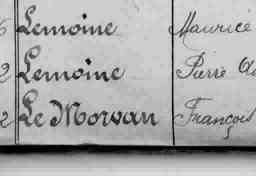 Lemoine Maurice
2 Lemoine Pierre
2 Le Morvan François